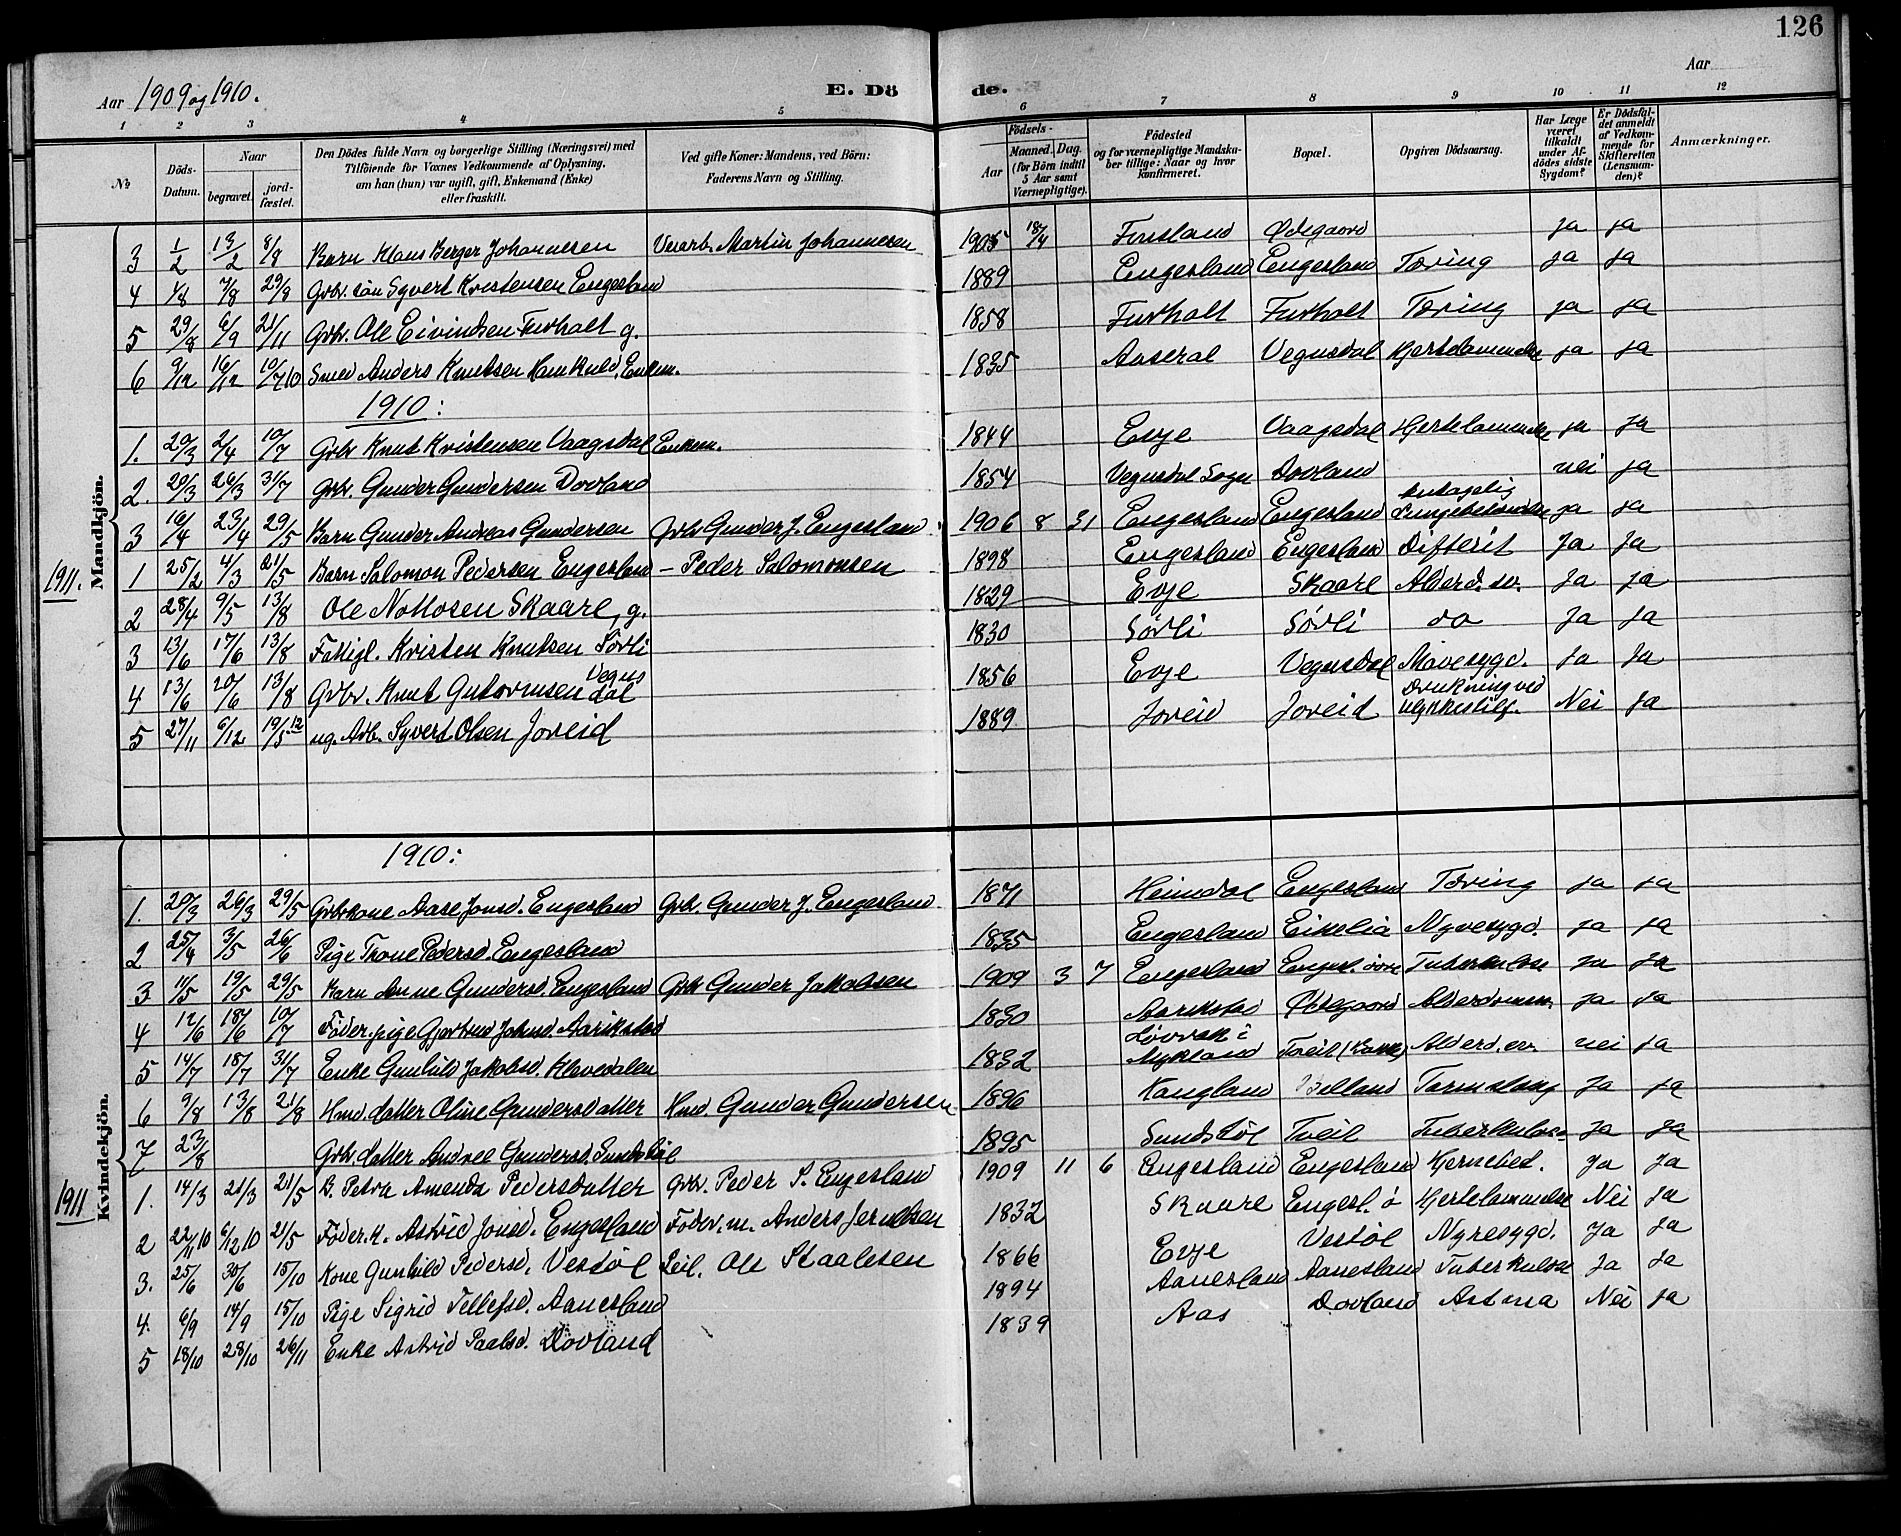 126
Aar 1909 og 1910. E. Dö de. Aar
1 2 3 4 5 6 7 8 9 10 11 12
№ Döds-Datum. Naar begravet. jordfæstet. Den Dödes fulde Navn og borgerlige Stilling (Næringsvei) med Tilföiende for Voxnes Vedkommende af Oplysning, om han (hun) var ugift, gift, Enkemand (Enke) eller fraskilt. Ved gifte Koner: Mandens, ved Börn: Faderens Navn og Stilling. Födsels- Aar Maaned. Dag. (for Börn indtil 5 Aar samt Værnepligtige). Födested og for værnepligtige Mandskaber tillige: Naar og hvor konfirmeret. Bopæl. Opgiven Dödsaarsag. Har Læge været tilkaldt under Afdödes sidste Sygdom? Er Dödsfaldet anmeldt af Vedkommende for Skifteretten (Lensmanden)? Anmærkninger.
Mandkjön.
3 1/2 13/2 8/8 Barn Klaus Berger Johannesen Veiarb. Martin Johannesen 1905 18/4 Finsland Ødegaard ja ja
4 1/8 7/8 29/8 Grbr. sön Syvert Kristensen Engesland 1889 Engesland Engesland Tæring ja ja
5 29/8 6/9 21/11 Grbr. Ole Eivindsen Furholt g. 1858 Furholt Furholt Tæring ja ja
6 9/12 16/12 10/7 10 Smed Anders Knutsen Homkuld, Enkem. 1835 Aaseral Vegusdal Hjertelammelse ja ja
1910:
1. 29/3 2/4 10/7 Grbr Knut Kristensen Vaagsdal Enkem. 1844 Evje Vaagsdal Hjertelammelse ja ja
2. 20/3 26/3 31/7 Grbr. Gunder Gundersen Dovland 1854 Vegusdal Sogn Dovland nei ja
3 16/4 23/4 29/5 Barn Gunder Andreas Gundersen Grbr Gunder J. Engesland 1906 8 31 Engesland Engesland Antagelig Lungebetændelse ja ja
1911.
1 25/2 4/3 21/5 Barn Salomon Pedersen Engesland – Peder Salomonsen 1898 Engesland Engesland Difterit Ja Ja
2 28/4 9/5 13/8 Ole Nottosen Skaare, g. 1829 Evje Skaare Alderd. sv. Ja ja
3 13/6 17/6 13/8 Fattigl. Kristen Knutsen Sørli 1830 Sørli Sørli do Ja Ja
4 13/6 20/6 13/8 Grbr. Knut Guttormsen Vegusdal 1856 Evje Vegusdal Mavesygd. Ja Ja
5 27/11 6/12 19/5 12 ug. Arb. Syvert Olsen Joreid 1889 Joreid Joreid Drukning ved ulykkestilf. Nei Ja
Kvindekjön.
1910:
1. 20/3 26/3 29/5 Grbrkone Aase Jonsd. Engesland Grbr. Gunder J. Engesland 1871 Heimdal Engesland Tæring ja ja
2 25/4 3/5 26/6 Pige Trone Pedersd. Engesland 1835 Engesland Eikelia Nyresygd. ja ja
3 11/5 19/5 29/5 Barn Anne Gundersd. Engesland Grbr Gunder Jakobsen 1909 3 7 Engesland Engesl. øvre Tuberkulose Ja Ja
4 12/6 18/6 10/7 Föder. pige Gjertrud Johnsd. Aarikstad 1830 Aarikstad Ødegaard Alderdomsv. ja Ja
5 14/7 18/7 31/7 Enke Gunhild Jakobsd. Klevedalen 1832 Løvrak i Mykland Tveit Alderd. sv. nei ja
6 9/8 13/8 21/8 Hmd. datter Oline Gundersdatter Hmd Gunder Gundersen 1896 Kangland Belland Tarmslyng Ja ja
7 23/8 Grbr datter Andree Gundersd. Sundstöl 1895 Sundstøl Tveit Tuberkulose Ja Ja
1911
1. 14/3 21/3 21/5 B. Petra Amanda Pedersdatter Grbr. Peder S. Engesland 1909 11 6 Engesland Engesland Hjernebet. Ja Ja
2 22/11 10 6/12 10 21/5 Föder. k. Astrid Jonsd. Engesland Föder. m. Anders 1832 Skaare Engesl. ö Hjertelammelse Nei ja
3. 25/6 30/6 15/10 Kone Gunhild Pedersd. Vestøl Leil. Ole Staalesen 1866 Evje Vestøl Nyresygd. Ja Ja
4. 6/9 14/9 15/10 Pige Sigrid Tellefsd. Aanesland 1894 Aanesland Aanesland Tuberkulose Ja Ja
5 18/10 28/10 26/11 Enke Astrid Paalsd. Dovland 1839 Aas Dovland Astma Nei ja